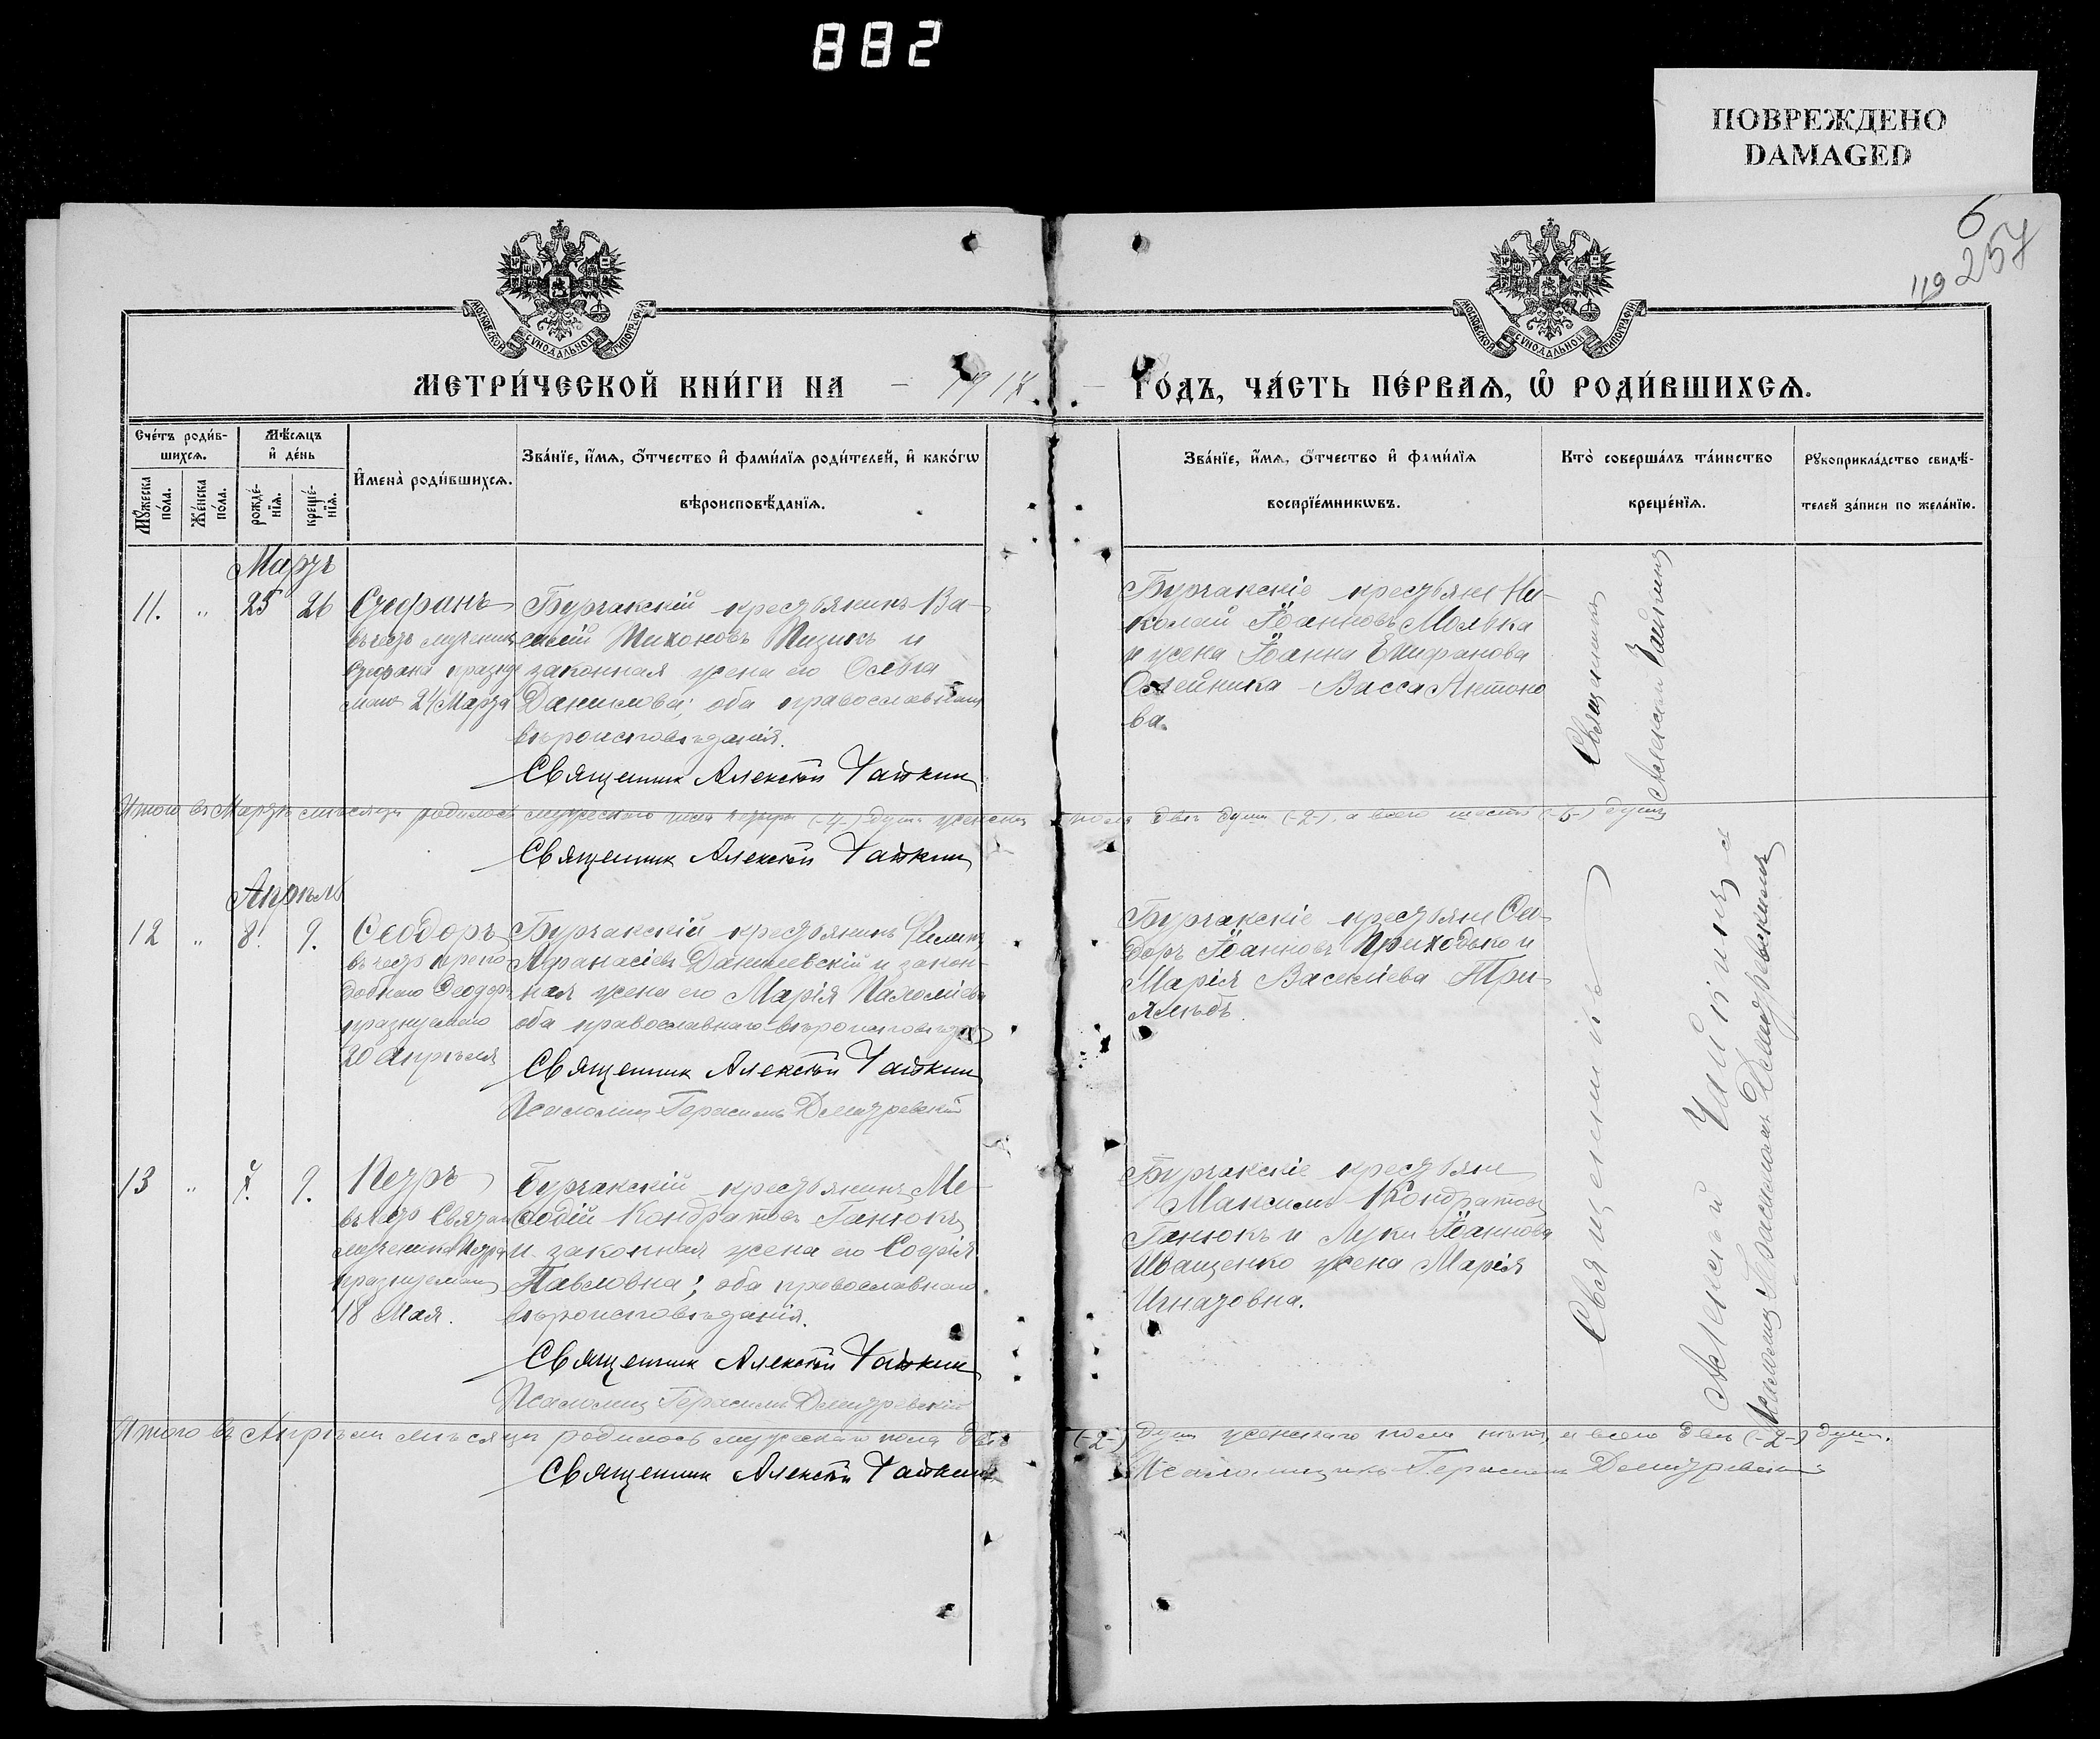 882
ПОВРЕЖДЕНО
DAMAGED
6
257
119
МОСКОВСКОЙ СУНОДАЛЬНОЙ ТИПОГРАФІИ
МОСКОВСКОЙ СУНОДАЛЬНОЙ ТИПОГРАФІИ
МЕТРИ́ЧЕСКОЙ КНИ́ГИ НА - 1917 - ГО́ДЪ, ЧА́СТЬ ПЕ́РВАѦ, Ѡ҆ РОДИ́ВШИХСѦ.
Сче́тъ роди́в-
шихсѧ.
Мѣ́сѧцъ
и҆ де́нь
Мꙋ́жеска по́ла.
Же́нска по́ла.
рожде́-нїѧ.
креще́-нїѧ.
И҆мена̀ роди́вшихсѧ.
Зва́нїе, и҆́мѧ, ѻ҆́тчество и҆ фами́лїѧ роди́телей, и҆ како́гѡ
вѣроисповѣ́данїѧ.
Зва́нїе, и҆́мѧ, ѻ҆́тчество и҆ фами́лїѧ
воспрїе́мникѡвъ.
Кто̀ соверша́лъ та́инство
креще́нїѧ.
Рꙋкоприкла́дство свидѣ́-
телей за́писи по жела́нїю.
Мартъ
11. „ 25 26 Стефанъ
въ честь мученика
Стефана праздну
маго 24 Марта
Бурчакскій крестьянинъ Ва-
силій Тихоновъ Пизикъ и
законная жена его Ольга
Данилова; оба православнаго
вѣроисповѣданія.
Священник Алексѣй Чайкин
Бурчакскіе крестьяне Ни-
колай Іоанновъ Молька
и жена Іоанна Епифанова
Олейника - Васса Антоно
ва.
Священникъ
Алексѣй Чайкинъ
Итого въ Мартѣ мѣсяцѣ родилось мужескаго пола четыре (-4-) душъ женска пола двѣ душъ (-2-), а всего шесть (-6-) душъ
Священник Алексѣй Чайкин
Апрѣль
12 „ 8. 9. Ѳеодоръ
въ честь препо
добнаго Ѳеодора
празнуемаго
20 апрѣля
Бурчакскій крестьянинъ Филиппъ
Афанасіевъ Данилевскій и закон-
ная жена его Марія Пахоміева
оба православнаго вѣроисповѣд.
Священник Алексѣй Чайкин
Псаломщ. Герасимъ Деметревскій
Бурчакскіе крестьяне Си-
доръ Іоанновъ Приходько и
Марія Васильева При-
хлѣбъ.
13 „ 9. Петръ
въ честь Святаго
мученика Петра
празнуемаго
18 Мая.
Бурчакскій крестьянинъ Ме-
ѳодій Кондратовъ Ганюкъ
и законная жена его Софія
Павловна; оба православнаго
вѣроисповѣданія.
Священник Алексѣй Чайкин
Псаломщ. Герасимъ Деметревскій
Бурчакскіе крестьяне
Максимъ Кондратовъ
Ганюкъ и Луки Іоаннова
Иващенко жена Марія
Игнатовна.
Священникъ
Алексѣй Чайкинъ и
Псаломщ. Герасимъ Деметревскій
Итого въ Апрѣлѣ мѣсяцѣ родилось мужескаго пола двѣ (-2-) душ женскаго пола нѣтъ, а всего двѣ (-2-) душ.
Священник Алексѣй Чайкин
Псаломщикъ Герасимъ Деметревскій